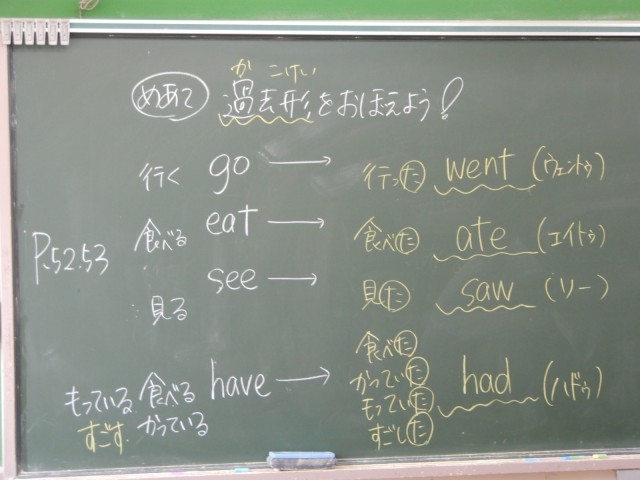 か こけい
めあて 過去形をおぼえよう!
行く go → 行った went (ウェントゥ)
食べる eat → 食べた ate (エイトゥ)
P.52.53
見る see → 見た saw (ソー)
もっている 食べる have → 食べた had (ハドゥ)
すごす かっている かっていた
もっていた
すごした